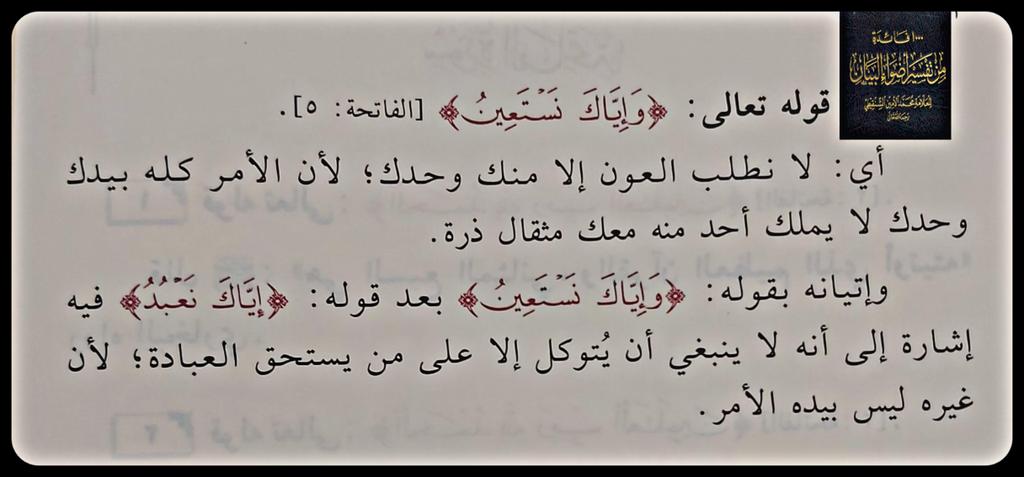 ١٠٠٠ فائدة
من تفسير أضواء البيان
للعلامة محمد الأمين الشنقيطي
رحمه الله تعالى
قوله تعالى: ﴿وَإِيَّاكَ نَسْتَعِينُ﴾ [الفاتحة: ٥].
أي: لا نطلب العون إلا منك وحدك؛ لأن الأمر كله بيدك
وحدك لا يملك أحد منه معك مثقال ذرة.
وإتيانه بقوله: ﴿وَإِيَّاكَ نَسْتَعِينُ﴾ بعد قوله: ﴿إِيَّاكَ نَعْبُدُ﴾ فيه
إشارة إلى أنه لا ينبغي أن يُتوكل إلا على من يستحق العبادة؛ لأن
غيره ليس بيده الأمر.